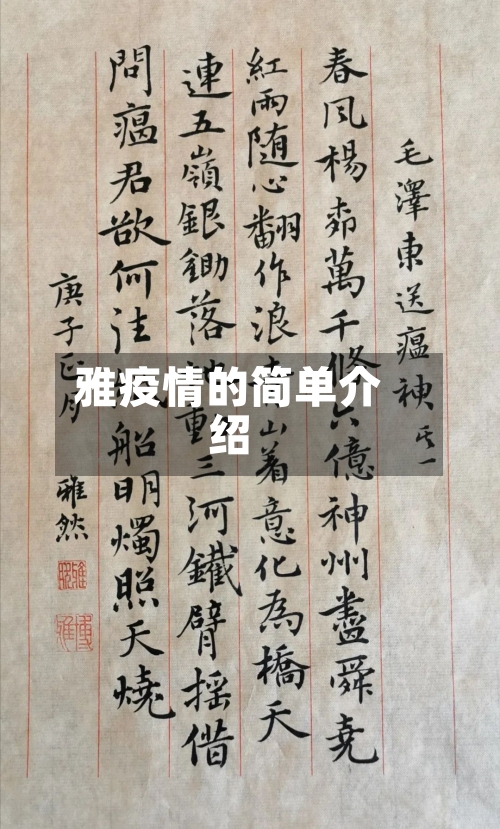 毛澤東送瘟神其一
春风楊柳萬千條六億神州盡舜堯
紅雨随心翻作浪山着意化為橋天
連五嶺銀鋤落三河鐵臂摇借
問瘟君欲何往船明燭照天燒
庚子正月 雅然
雅疫情的简单介
绍